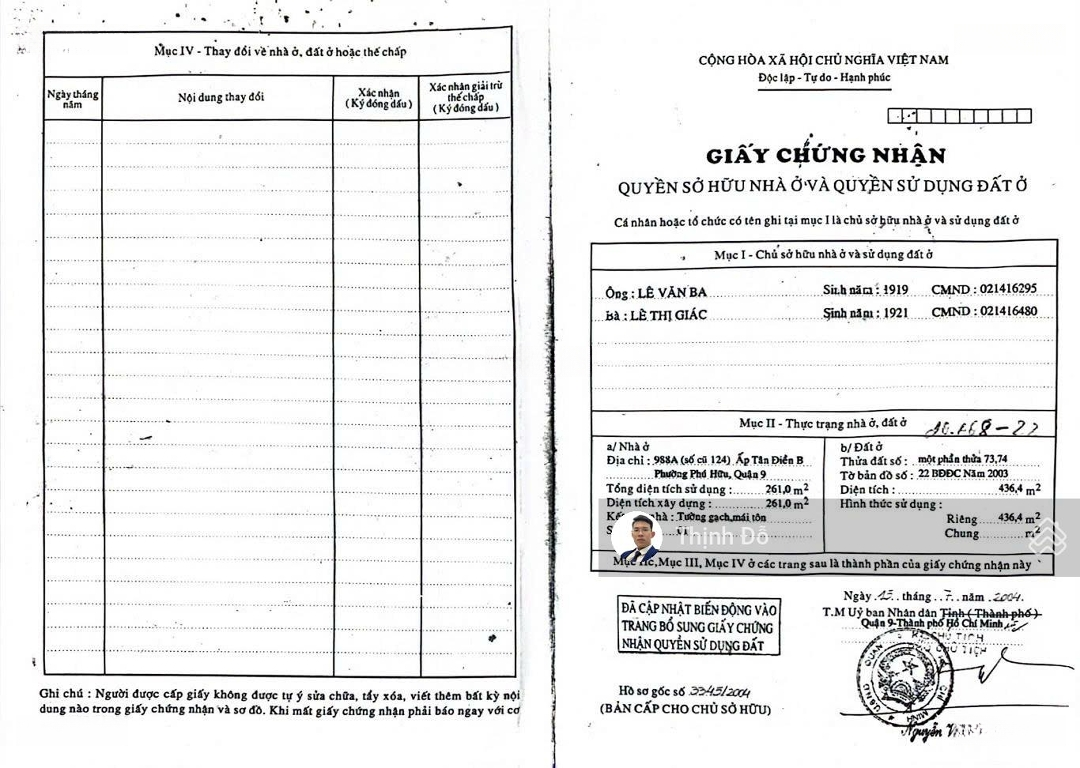 Mục IV - Thay đổi về nhà ở, đất ở hoặc thế chấp
Ngày tháng năm
Nội dung thay đổi
Xác nhận
(Ký đóng dấu)
Xác nhận giải trừ thế chấp
(Ký đóng dấu)
Ghi chú : Người được cấp giấy không được tự ý sửa chữa, tẩy xóa, viết thêm bất kỳ nội
dung nào trong giấy chứng nhận và sơ đồ. Khi mất giấy chứng nhận phải báo ngay với cơ
CỘNG HÒA XÃ HỘI CHỦ NGHĨA VIỆT NAM
Độc lập - Tự do - Hạnh phúc
GIẤY CHỨNG NHẬN
QUYỀN SỞ HỮU NHÀ Ở VÀ QUYỀN SỬ DỤNG ĐẤT Ở
Cá nhân hoặc tổ chức có tên ghi tại mục I là chủ sở hữu nhà ở và sử dụng đất ở
Mục I - Chủ sở hữu nhà ở và sử dụng đất ở
Ông : LÊ VĂN BA Sinh năm : 1919 CMND : 021416295
Bà : LÊ THỊ GIÁC Sinh năm : 1921 CMND : 021416480
Mục II - Thực trạng nhà ở, đất ở
a/ Nhà ở
Địa chỉ : 988A (số cũ 124) Ấp Tân Điền B
Phường Phú Hữu, Quận 9
Tổng diện tích sử dụng : 261,0 m2
Diện tích xây dựng : 261,0 m2
Tường gạch, mái tôn
01
b/ Đất ở
Thửa đất số : một phần thửa 73,74
Tờ bản đồ số : 22 BĐĐC Năm 2003
Diện tích : 436,4 m2
Hình thức sử dụng :
Riêng 436,4 m2
Chung m2
Thịnh Đỗ
Mục IIc, Mục III, Mục IV ở các trang sau là thành phần của giấy chứng nhận này
ĐÃ CẬP NHẬT BIẾN ĐỘNG VÀO
TRANG BỔ SUNG GIẤY CHỨNG
NHẬN QUYỀN SỬ DỤNG ĐẤT
Hồ sơ gốc số 3345/2004
(BẢN CẤP CHO CHỦ SỞ HỮU)
Ngày 15 tháng 7 năm 2004
T.M Uỷ ban Nhân dân Tỉnh ( Thành phố )
Quận 9-Thành phố Hồ Chí Minh
Nguyễn